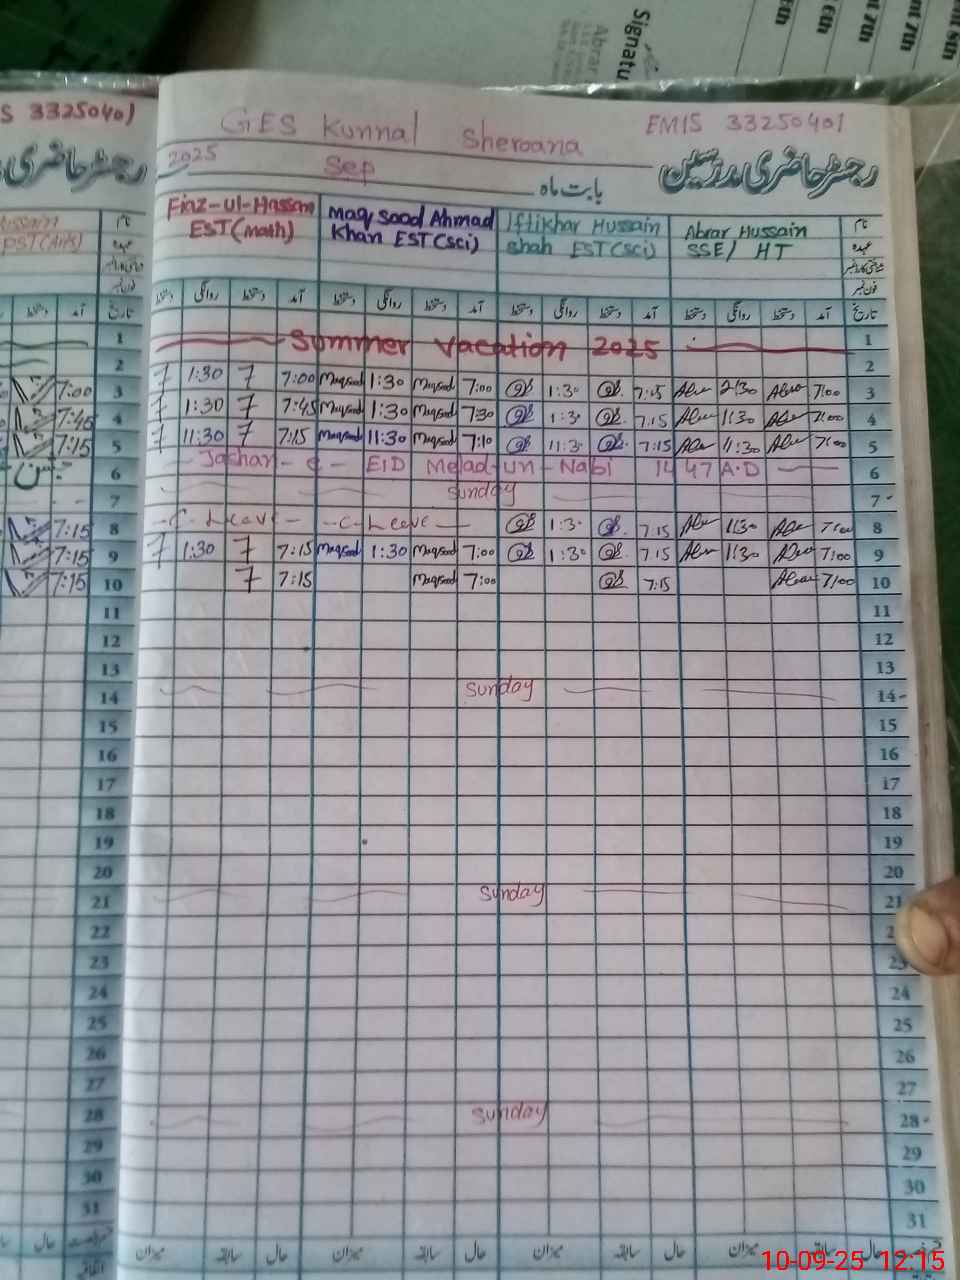 Signatu
Abrar
6th
nt 7th
nt 8th
S 33250401
GES Kunnal Sheroana EMIS 33250401
2025 Sep بابت ماہ رجسٹر حاضری مدرسین
رجسٹر حاضری
Fiaz-ul-Hassan Maqsood Ahmad Iftikhar Hussain Abrar Hussain نام
EST(math) Khan EST(sci) shah EST(sci) SSE/ HT عہدہ
ussain
PST(Arts)
نام
عہدہ
فون نمبر
دستخط روانگی دستخط آمد دستخط روانگی دستخط آمد دستخط روانگی دستخط آمد دستخط روانگی دستخط آمد تاریخ
دستخط آمد تاریخ
1 Summer Vacation 2025 1
2 2
7:00 3 1:30 7:00 Maqsood 1:30 Maqsood 7:00 1:30 7:15 Abrar 2:30 Abrar 7:00 3
7:45 4 1:30 7:45 Maqsood 1:30 Maqsood 7:30 1:30 7:15 Abrar 1:30 Abrar 7:00 4
7:15 5 11:30 7:15 Maqsood 11:30 Maqsood 7:10 11:30 7:15 Abrar 11:30 Abrar 7:00 5
جشن 6 Jashan - e - EID Melad-un-Nabi 1447 A.D 6
7 Sunday 7
7:15 8 -C- Leave- -C-Leave- 1:30 7:15 Abrar 1:30 Abrar 7:00 8
7:15 9 1:30 7:15 Maqsood 1:30 Maqsood 7:00 1:30 7:15 Abrar 1:30 Abrar 7:00 9
7:15 10 7:15 Maqsood 7:00 7:15 Abrar 7:00 10
11 11
12 12
13 13
14 Sunday 14
15 15
16 16
17 17
18 18
19 19
20 20
21 Sunday 21
22 2
23 23
24 24
25 25
26 26
27 27
28 Sunday 28
29 29
30 30
31 31
میزان سابقہ حال میزان سابقہ حال میزان سابقہ حال میزان سابقہ حال
حال
10-09-25 12:15